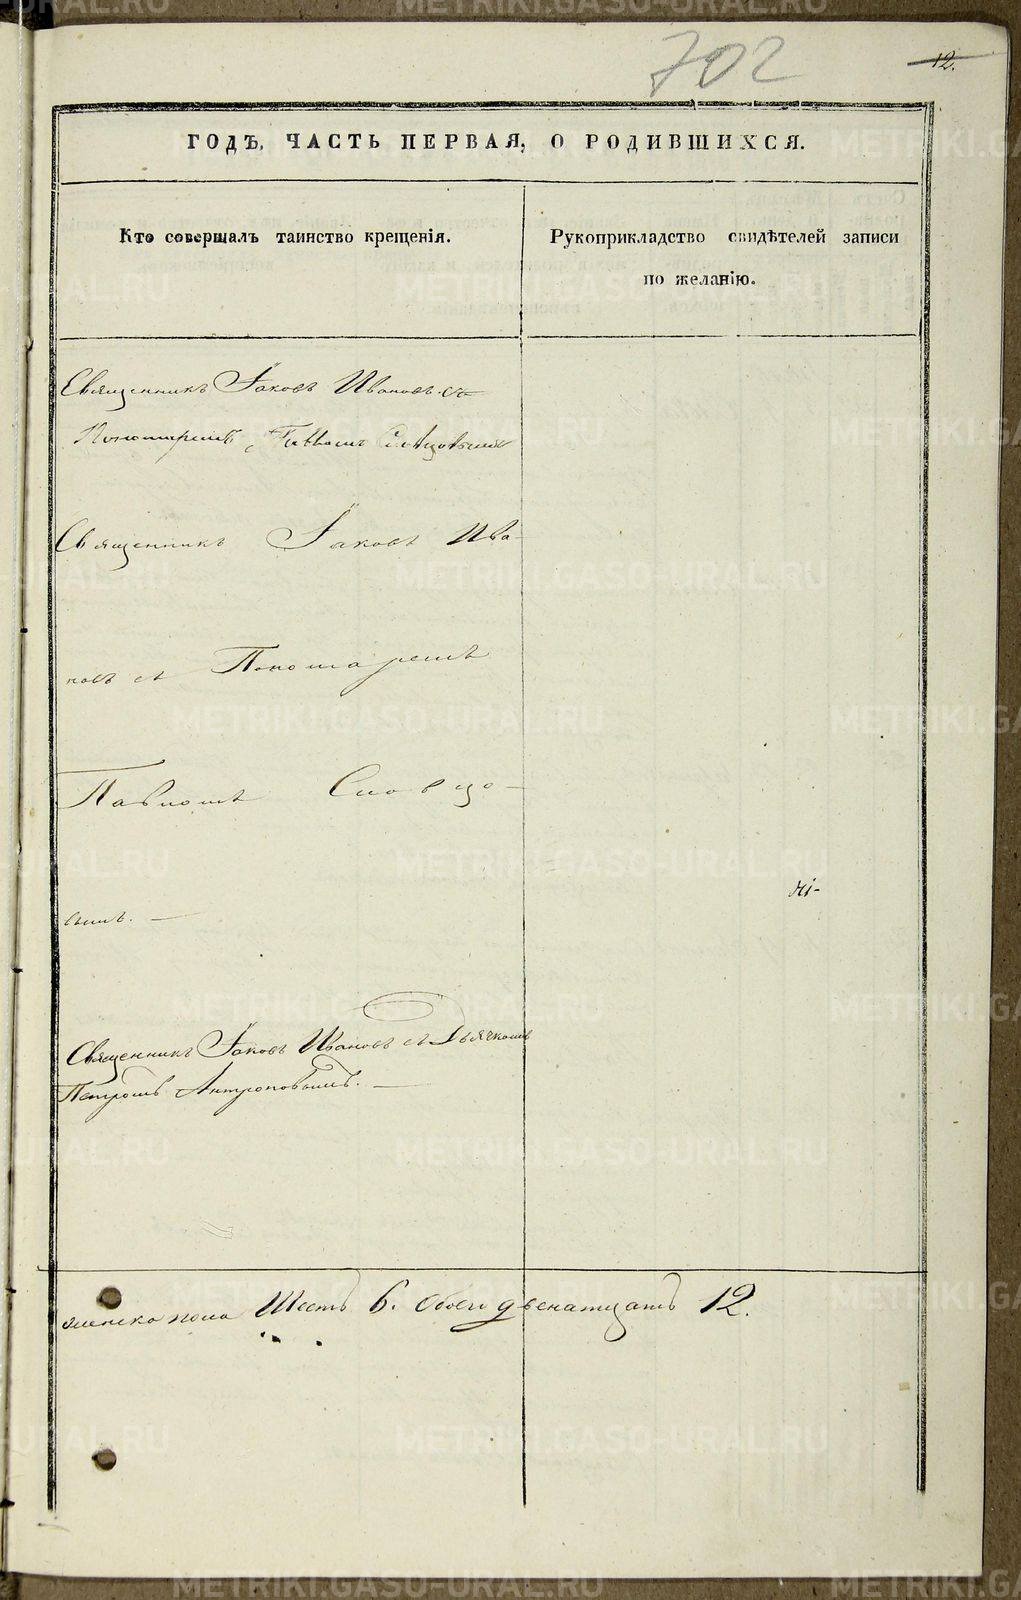 702
12.
ГОДѢ, ЧАСТЬ ПЕРВАЯ, О РОДИВШИХСЯ.
Кто совершалъ таинство крещенія.
Рукоприкладство свидѣтелей записи
по желанію.
Священникъ Іаковъ Ивановъ съ
Пономаремъ Павломъ Словцовымъ
Священникъ Іаковъ Ива-
новъ съ Пономаремъ
Павломъ Словцо-
вымъ. —
Священникъ Іаковъ Ивановъ съ Дьячкомъ
Петромъ Антроповымъ. —
женска пола Шесть 6. обоего двенатцать 12.
METRIKI.GASO-URAL.RU